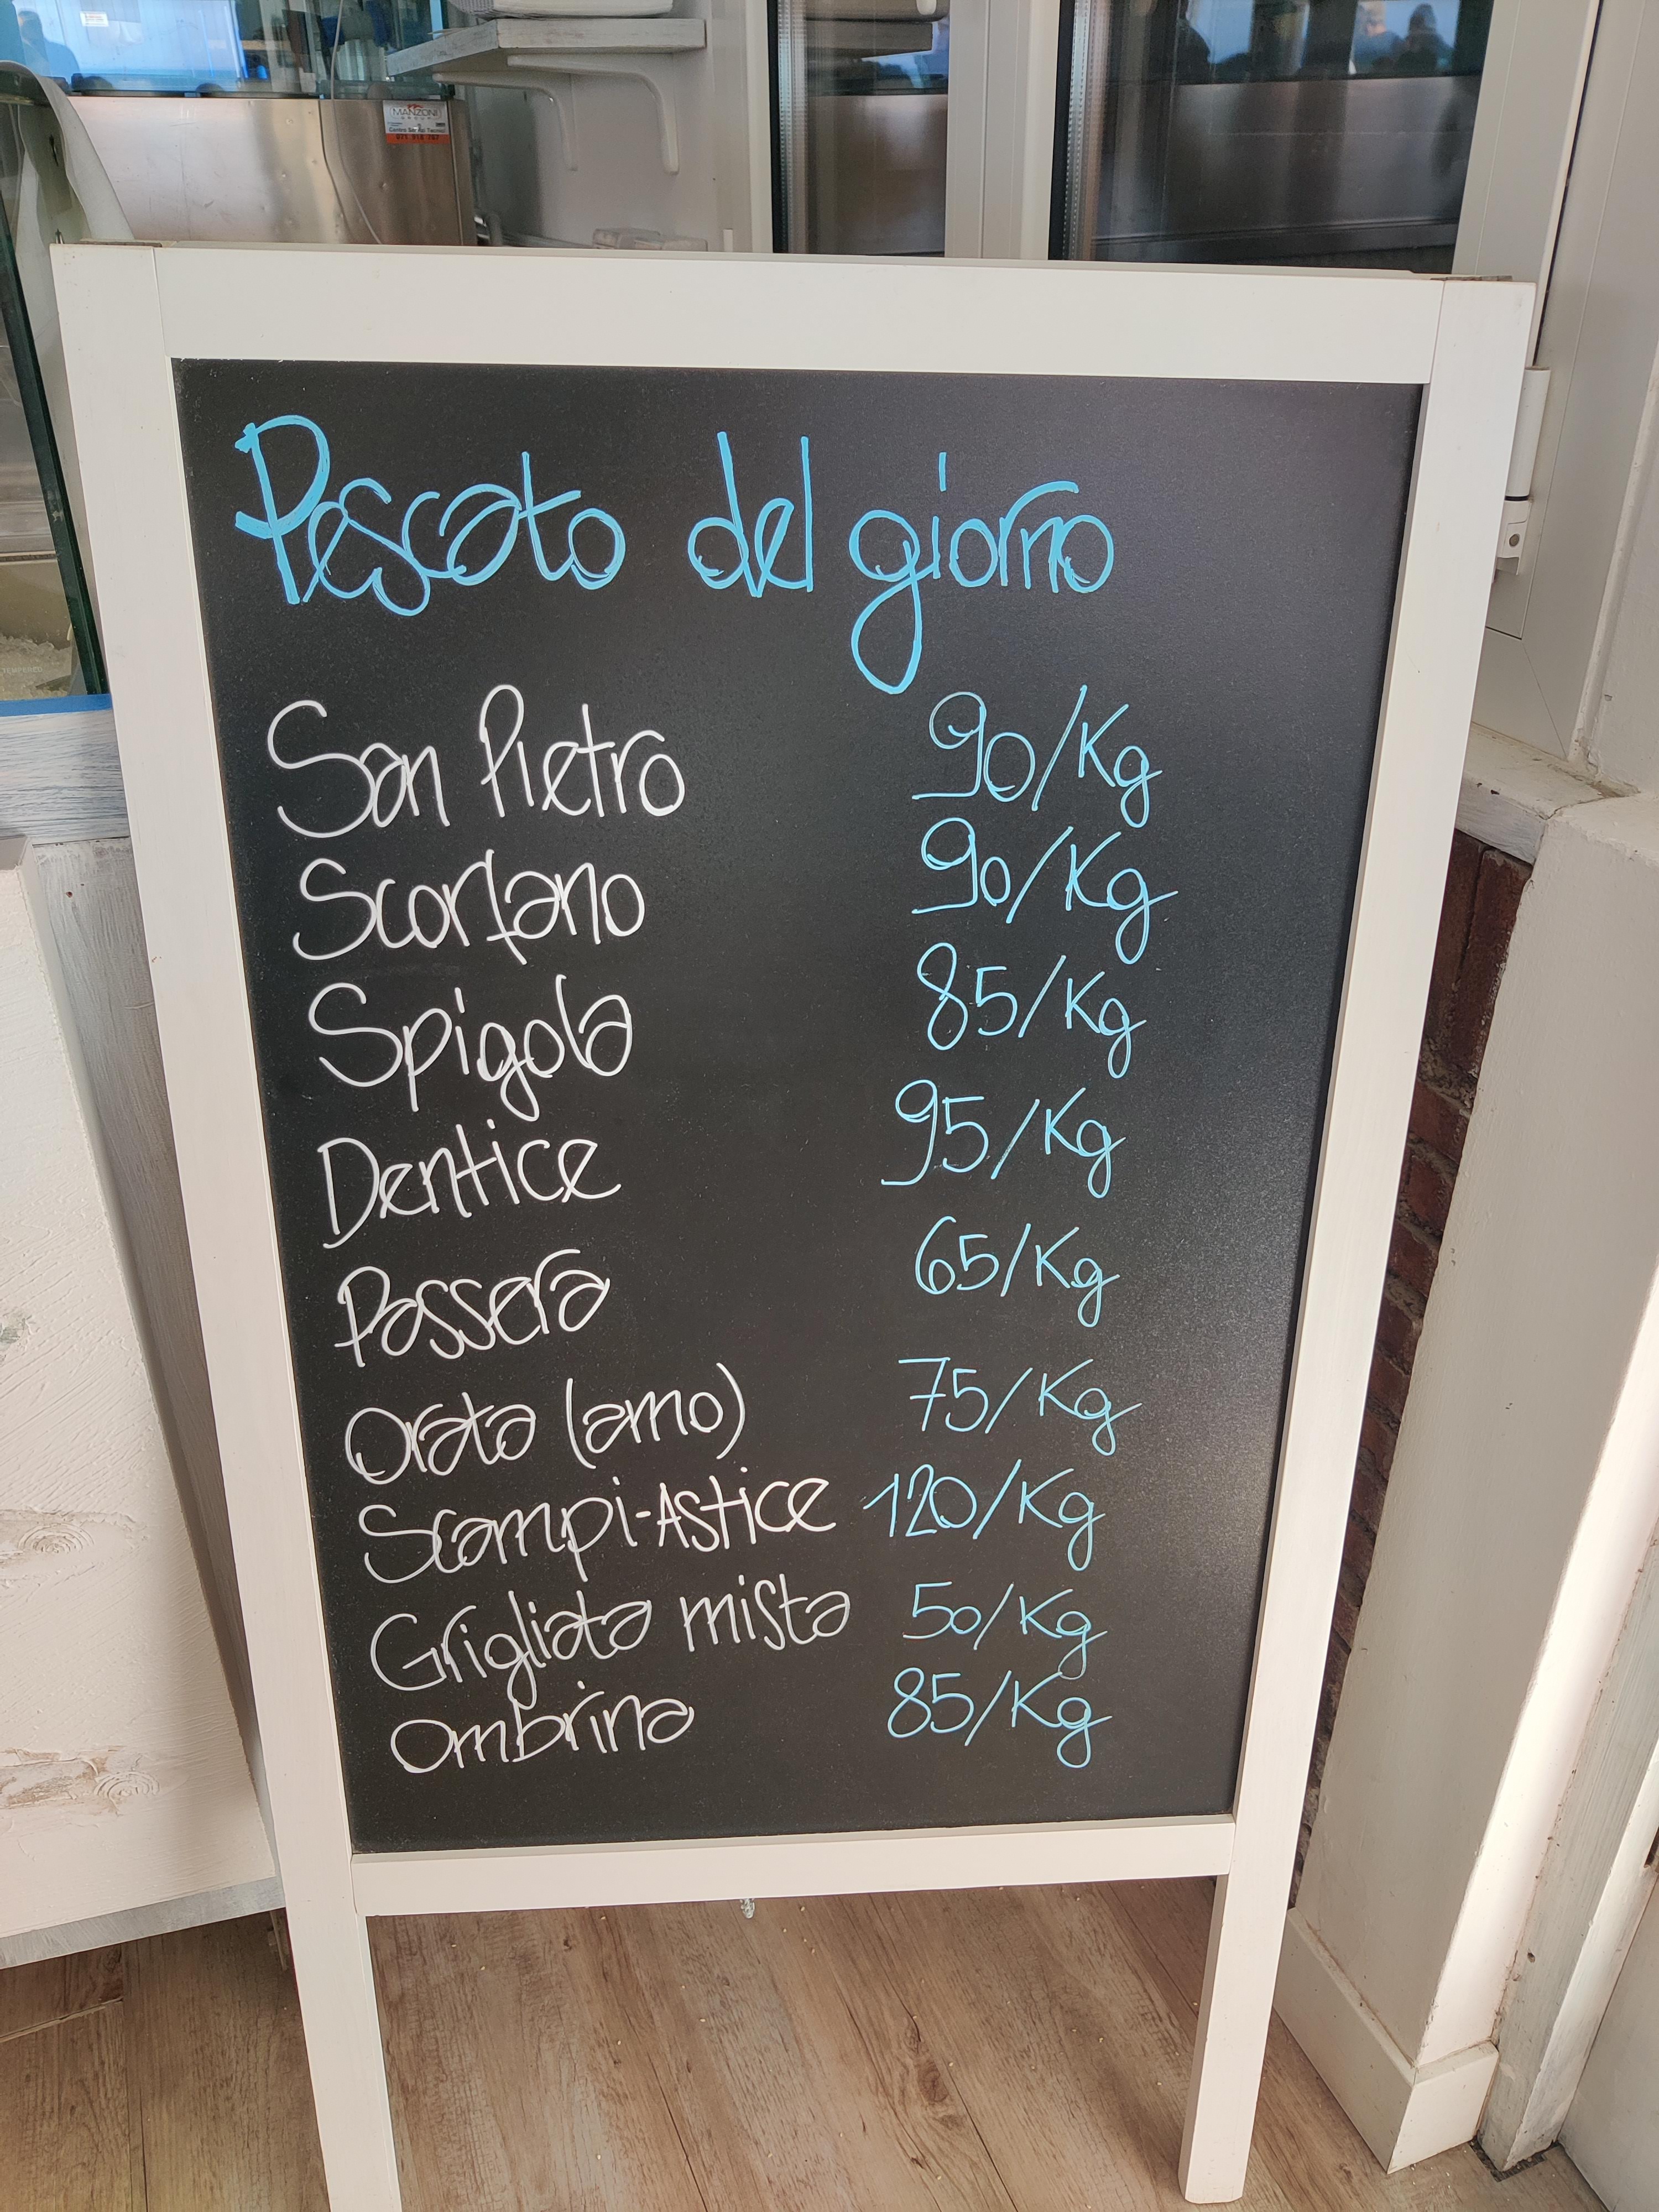 MANZONI
GROUP
Pescato del giorno
San Pietro 90/Kg
Scorfano 90/Kg
Spigola 85/Kg
Dentice 95/Kg
Passera 65/Kg
Orata (amo) 75/Kg
Scampi-Astice 120/Kg
Grigliata mista 50/Kg
Ombrina 85/Kg